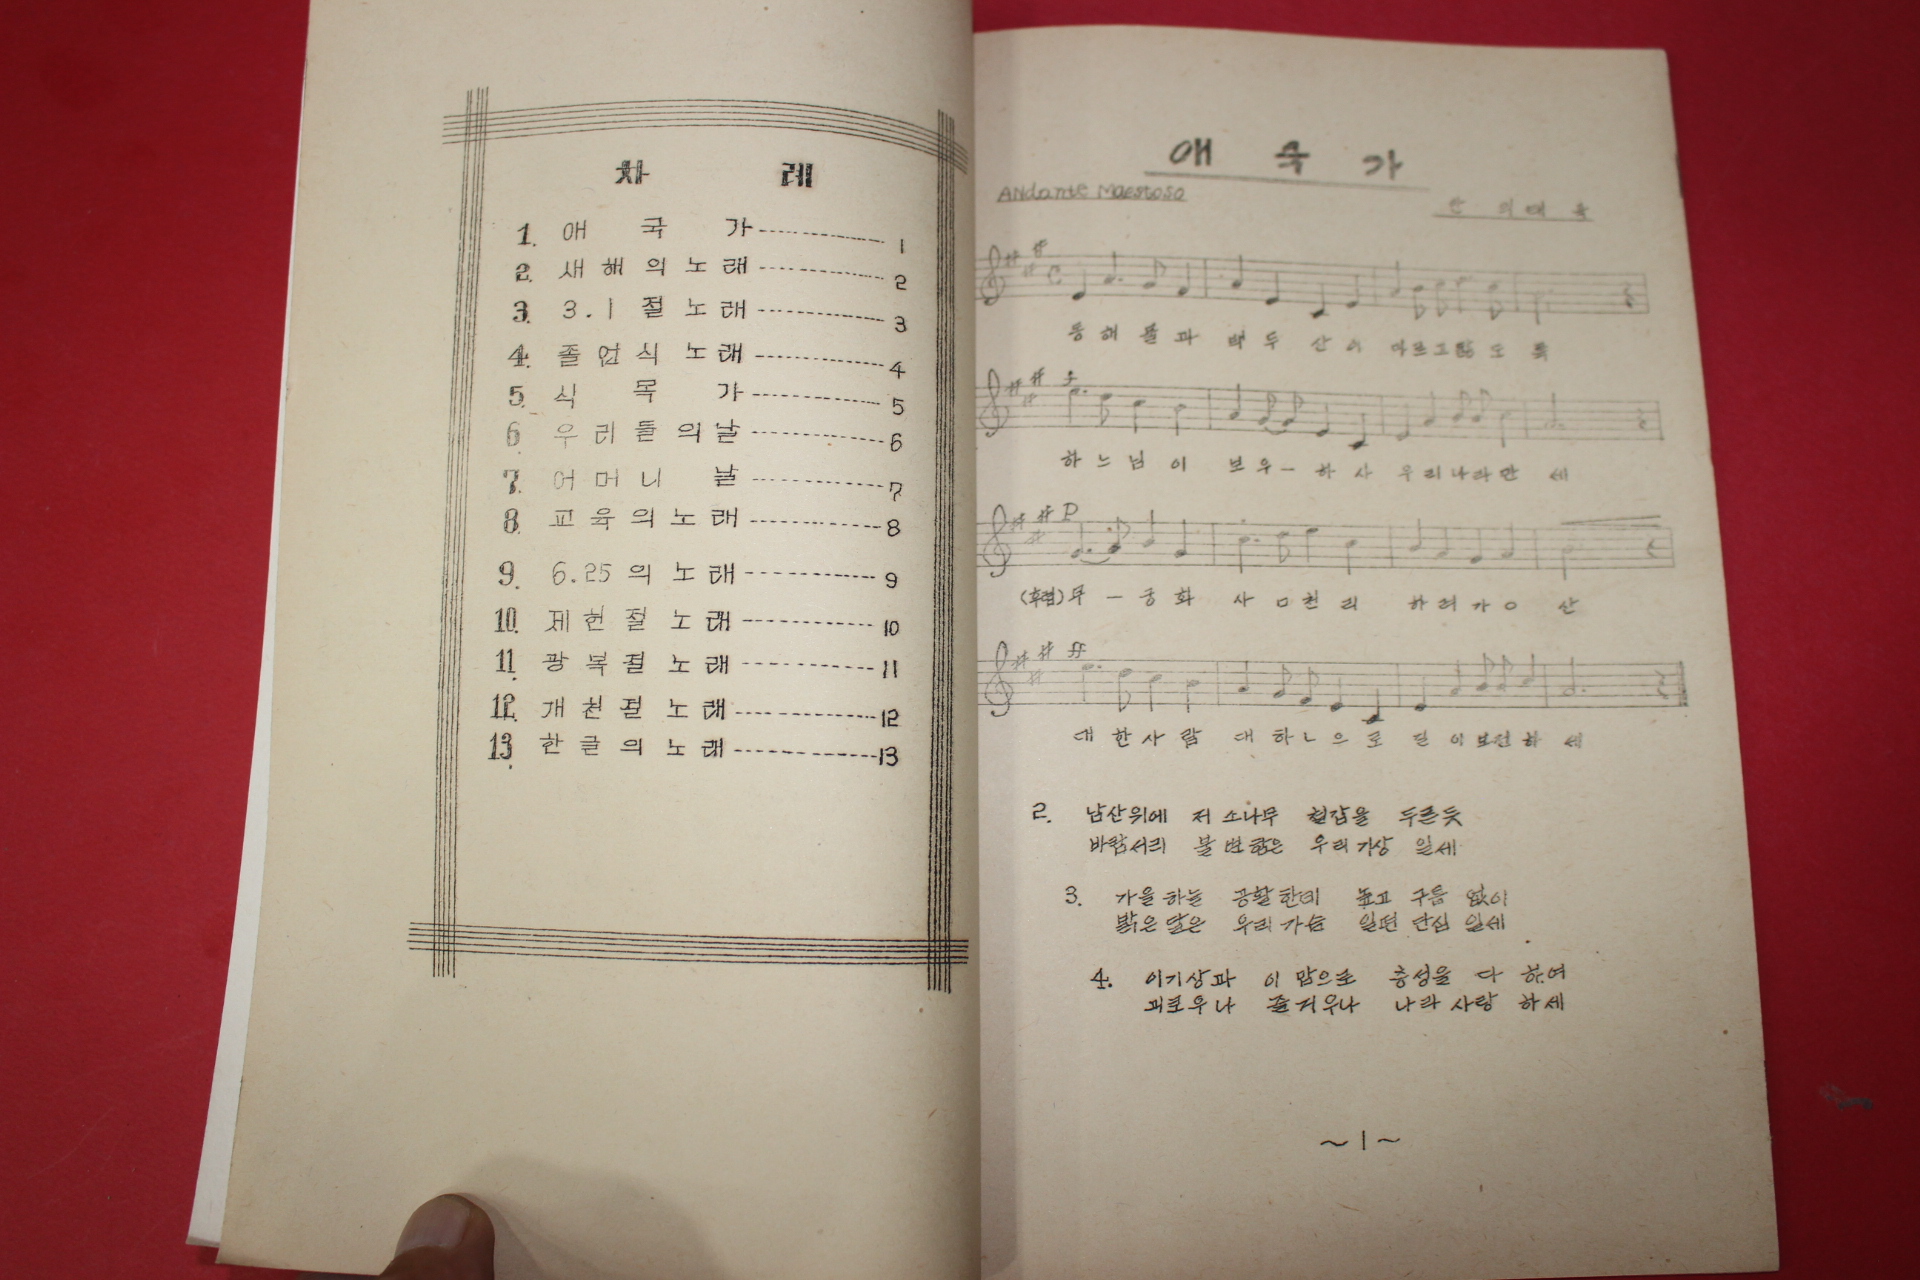 차 레
1. 애 국 가 1
2. 새 해 의 노 래 2
3. 3.1 절 노 래 3
4. 졸 업 식 노 래 4
5. 식 목 가 5
6 우 리 들 의 날 6
7. 어 머 니 날 7
8. 교 육 의 노 래 8
9. 6.25 의 노 래 9
10. 제 헌 절 노 래 10
11. 광 복 절 노 래 11
12. 개 천 절 노 래 12
13. 한 글 의 노 래 13
애 국 가
Andante Maestoso
동 해 물 과 백 두 산 이 마르고 닳 도 록
하 느 님 이 보 우 - 하 사 우 리 나 라 만 세
(후렴) 무 - 궁 화 사 ㅁ 천 리 하 려 가 ㅇ 산
대 한 사 람 대 하 ㄴ 으 로 길 이 보 전 하 세
2. 남산위에 저 소나무 철갑을 두른듯
바람서리 불변함은 우리기상 일세
3. 가을하는 공활한데 높고 구름 없이
밝은달은 우리가슴 일편단심 일세
4. 이기상과 이 맘으로 충성을 다 하여
괴로우나 즐거우나 나라사랑 하세
~1~